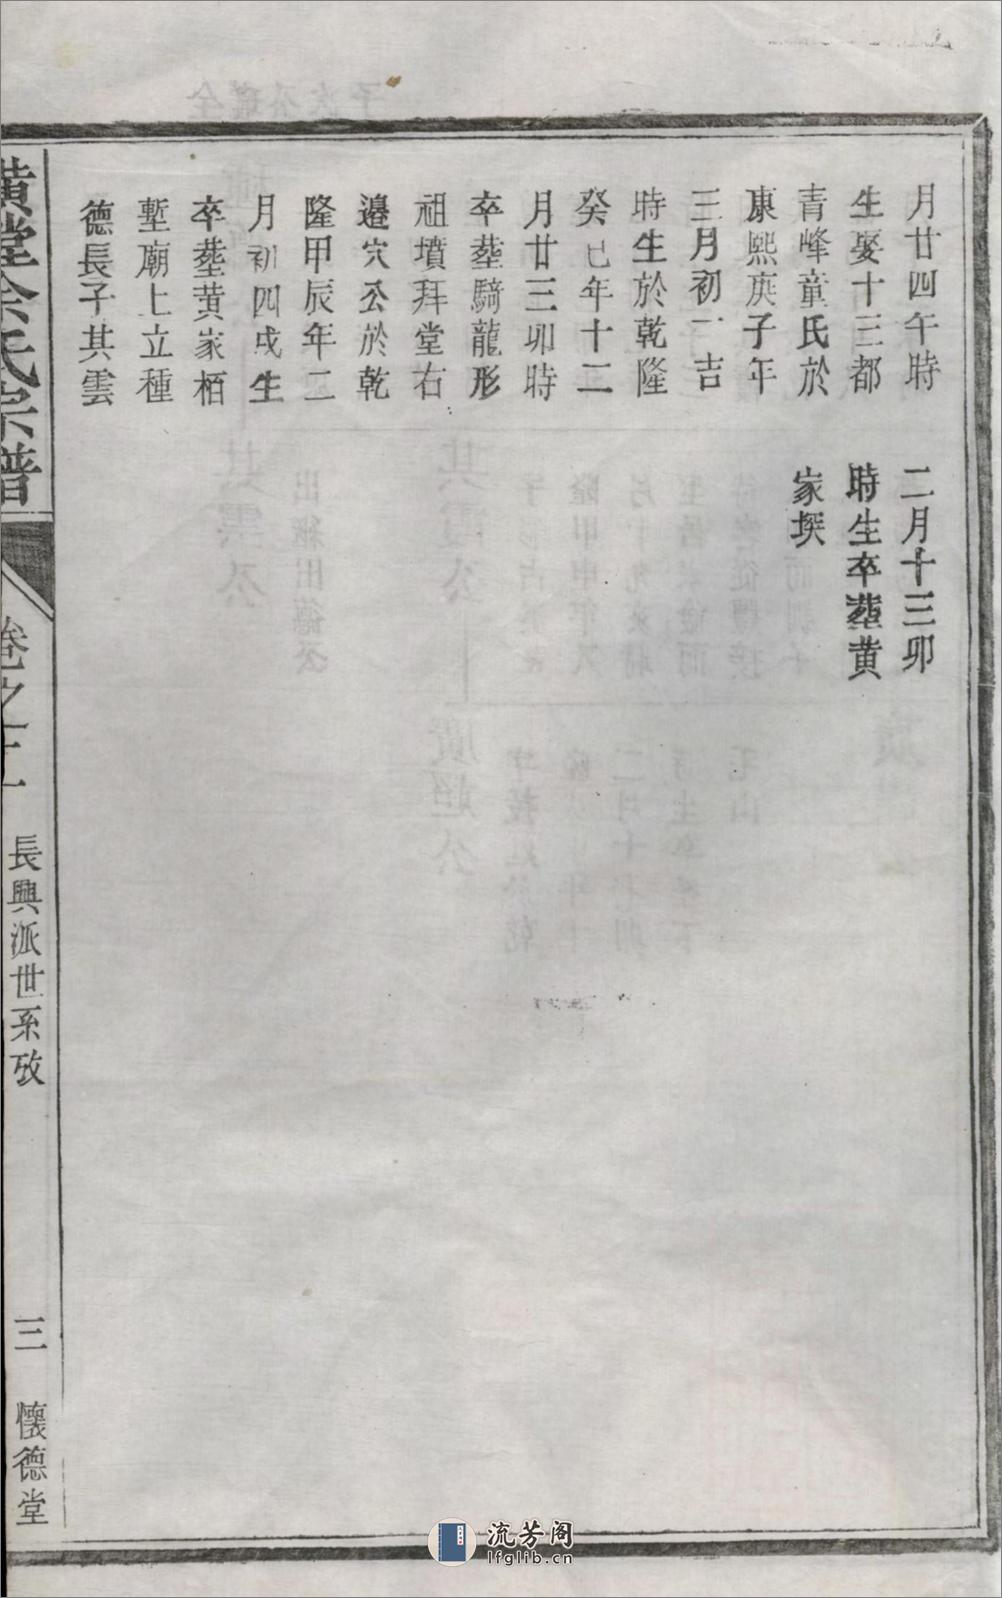 月廿四午時
生娶十三都
青峰童氏於
康熙庚子年
三月初一吉
時生於乾隆
癸巳年十二
月廿三卯時
卒塟騎龍形
祖墳拜堂右
邉穴公於乾
隆甲辰年二
月初四戌生
卒塟黄家栢
塹廟上立種
德長子其雲
二月十三卯
時生卒塟黄
家塽
黄堂余氏宗譜
卷之二
長興派世系攷
三
懷德堂
流芳阁
lfglib.cn